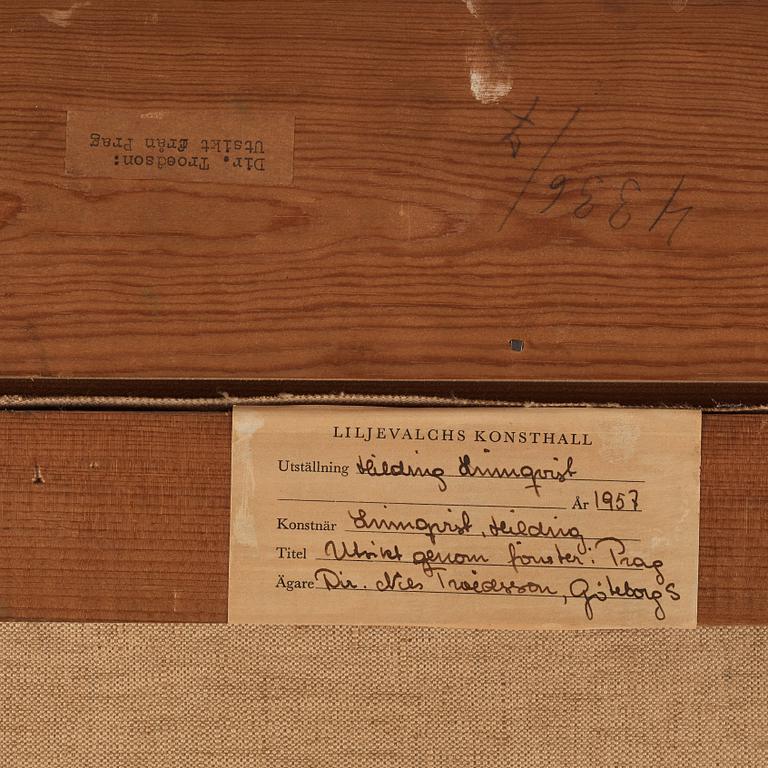 Dir. Troedson:
Utsikt från Prag
4336/4
LILJEVALCHS KONSTHALL
Utställning Hilding Linnqvist
År 1957
Konstnär Linnqvist, Hilding
Titel Utsikt genom fönster: Prag
Ägare Dir. Nils Troedsson, Göteborg S